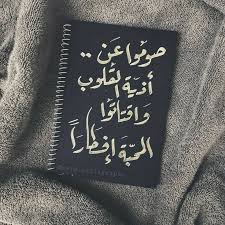 صوموا عن ..
أذية القلوب
واقتاتوا
المحبة إفطاراً